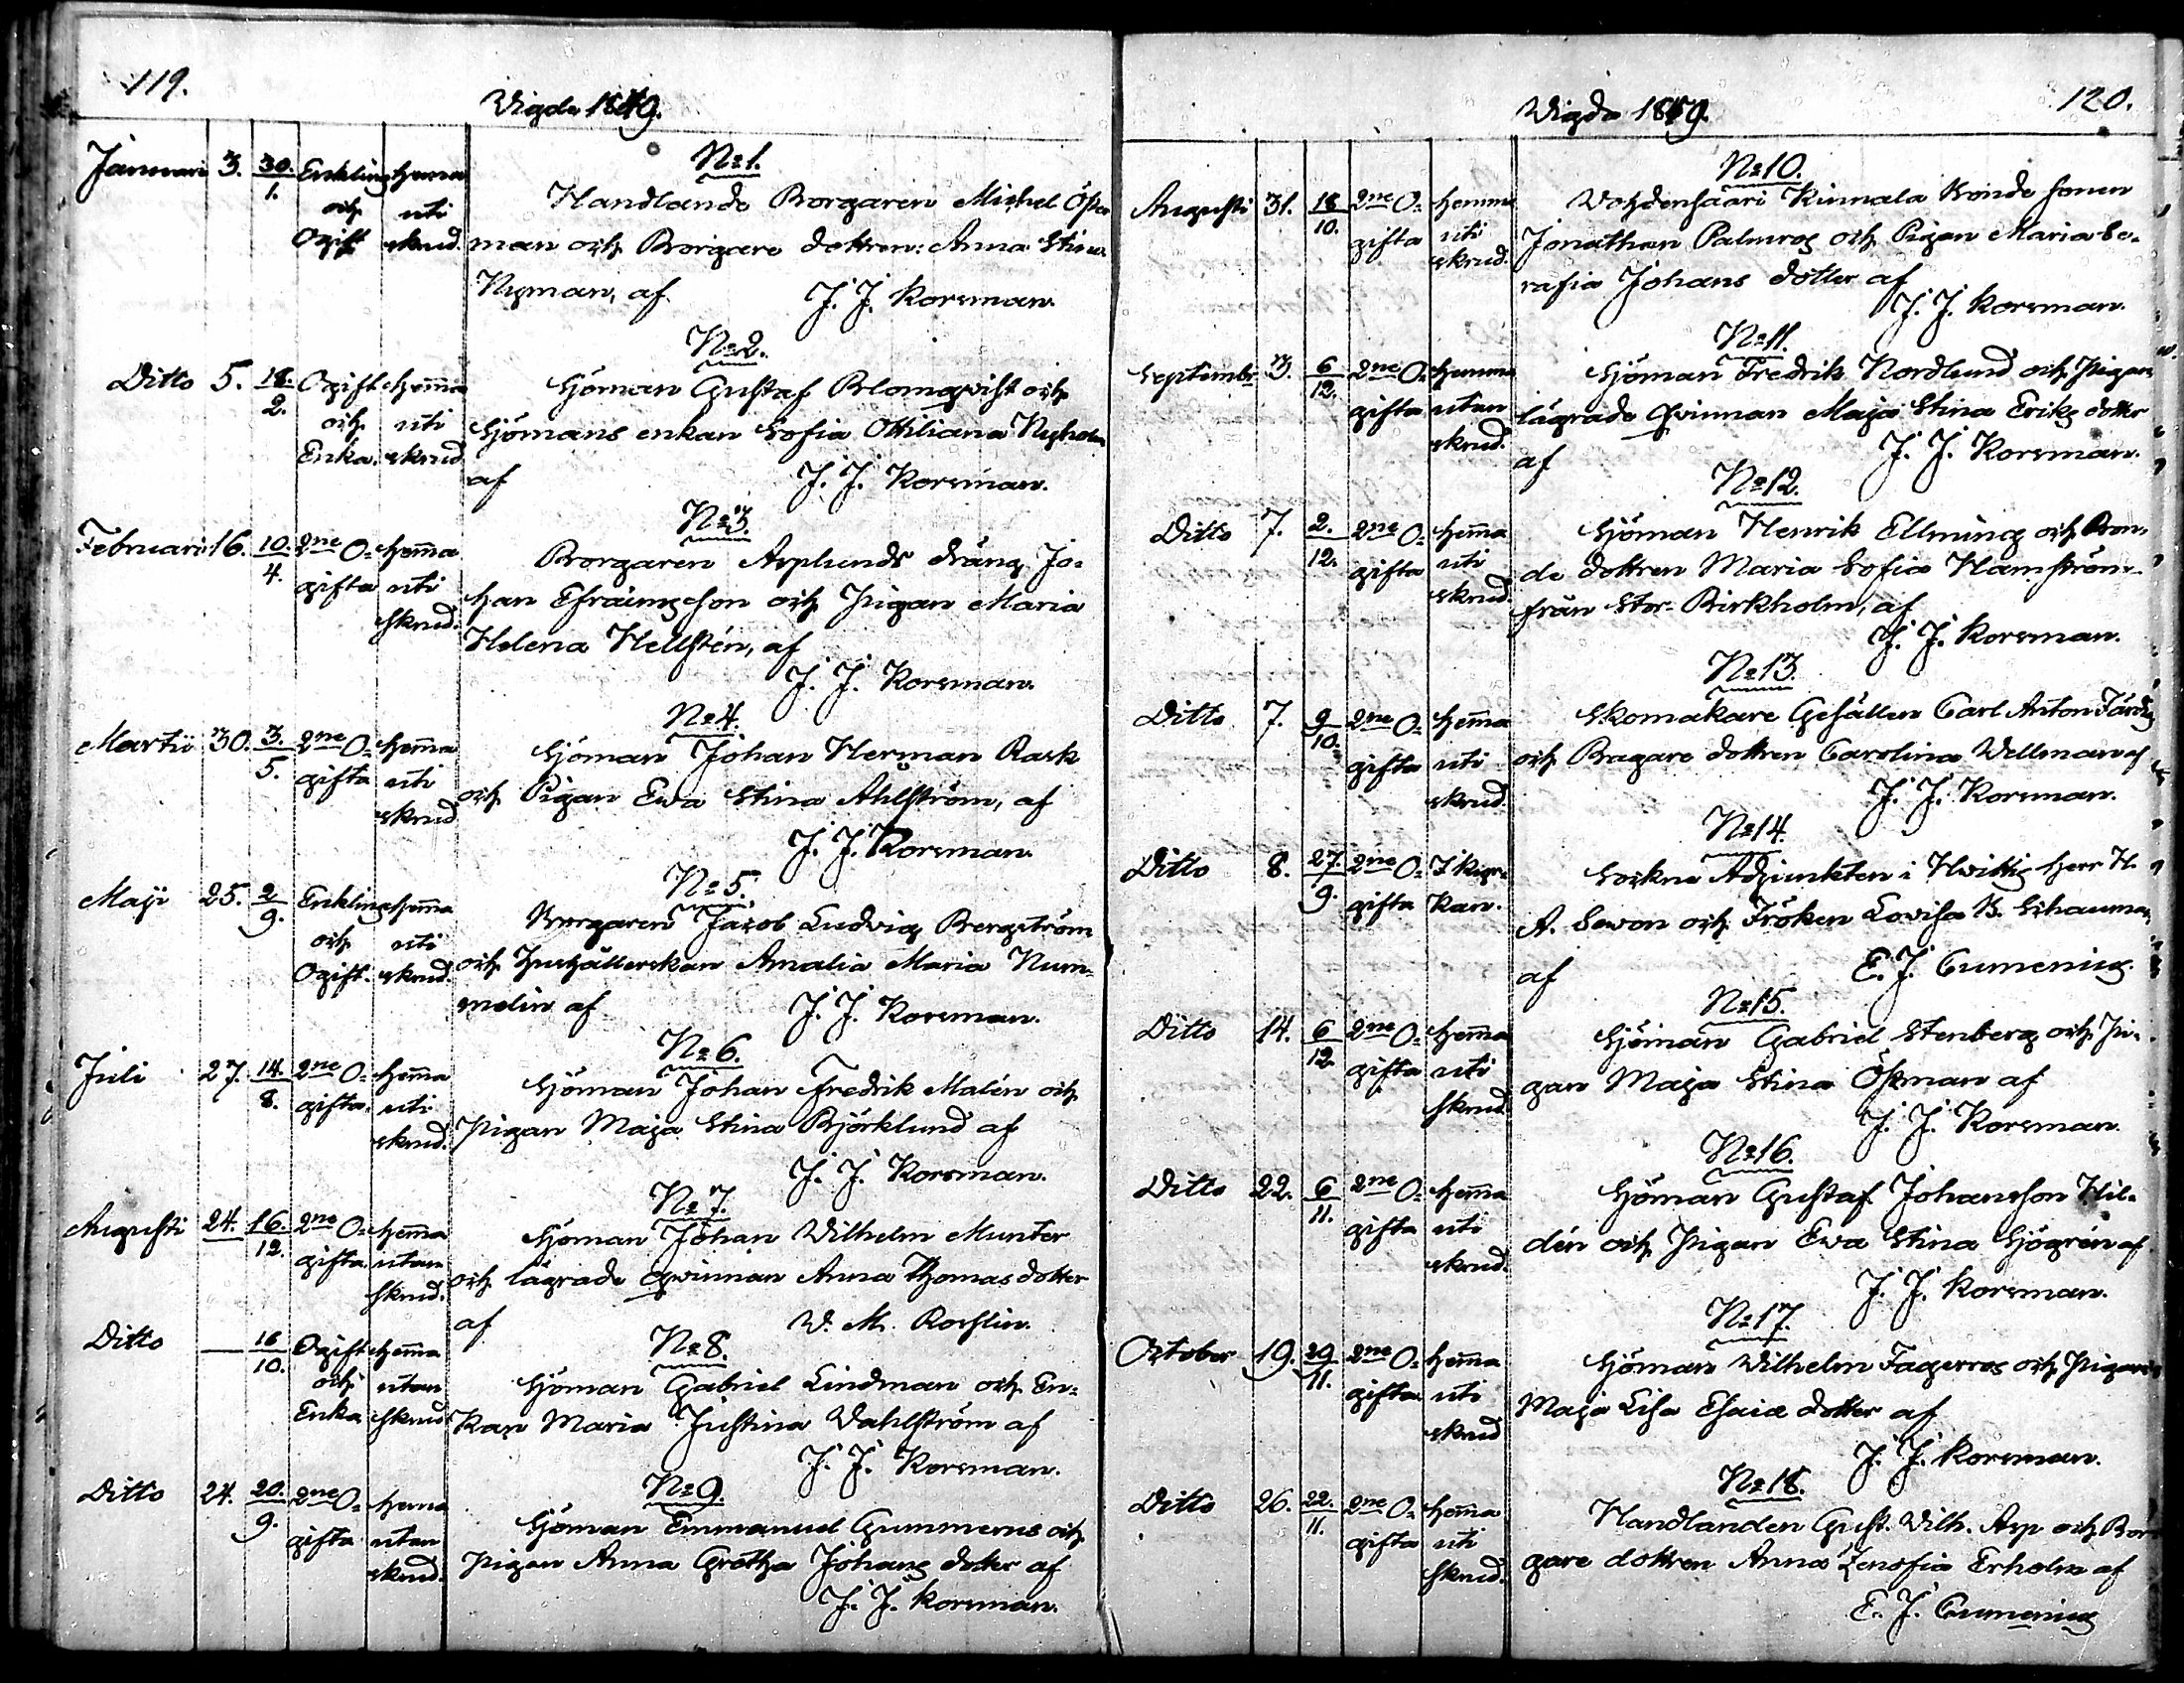 119.
Vigde 1849.
Januari 3. 30./1. Enkling och Ogift hema uti skrud.
No 1.
Handlande Borgaren Michel Öster
man och Borgare dottren: Anna Stina
Nyman, af
J. J. Korsman.
Ditto 5. 18./2. Ogift och Enka. hema uti skrud
No 2.
Sjöman Gustaf Blomqvist och
Sjömans enkan Sofia Ottiliana Nyholm
af J. J. Korsman.
Februari 16. 10./4. 2ne O= gifta hema uti skrud.
No 3.
Borgaren Asplunds dräng Jo=
han Efraimsson och Pigan Maria
Helena Hellstén, af
J. J. Korsman.
Martii 30. 3./5. 2ne O= gifta hema uti skrud
No 4.
Sjöman Johan Herman Rask
och Pigan Ewa Stina Ahlström, af
J. J. Korsman.
Maji 25. 2/9. Enkling och Ogift. hema uti skrud.
No 5.
Borgaren Jacob Ludvig Bergström
och Hushållerskan Amalia Maria Num=
melin af J. J. Korsman.
Juli 27. 14./8. 2ne O= gifta. hema uti skrud.
No 6.
Sjöman Johan Fredrik Malén och
Pigan Maja Stina Björklund af
J. J. Korsman.
Augusti 24. 16./12. 2ne O= gifta hema utan skrud.
No 7.
Sjöman Johan Wilhelm Munter
och lägrade qwinnan Anna Thomas dotter
af W. M. Roslin.
Ditto — 18/10. Ogift och Enka hema utan skrud
No 8.
Sjöman Gabriel Lindman och En=
kan Maria Justina Wahlström af
J. J. Korsman.
Ditto 24. 20./9. 2ne O= gifta hema utan skrud.
No 9.
Sjöman Emmanuel Gummerus och
Pigan Anna Gretha Johans dotter af
J. J. Korsman.
120.
Vigde 1849.
Augusti 31. 18/10. 2ne O= gifta hemma uti skrud.
No 10.
Kinnala Bonde sonen
Jonathan Palmros och Pigan Maria Se=
rafia Johans dotter af
J. J. Korsman.
September 3. 6/12. 2ne O= gifta hemma utan skrud.
No 11.
Sjöman Fredrik Nordlund och Pigan
lägrade qwinnan Maja Stina Eriks dotter
af J. J. Korsman.
Ditto 7. 2./12. 2ne O= gifta hema uti skrud.
No 12.
Sjöman Henrik Ellming och Bon=
de dottren Maria Sofia Hamström
från Stor-Birkholm, af
J. J. Korsman.
Ditto 7. 9/10. 2ne O= gifta hema uti skrud.
No 13.
Skomakare Gesällen Carl Anton Färdig
och Bagare dottren Carolina Wellman af
J. J. Korsman.
Ditto 8. 27./9. 2ne O= gifta I kyr= kan.
No 14.
Sockne Adjunkten i Hwittis Herr H.
A. Sevon och Fröken Lovisa B. Schauman
af E. J. Cumenius.
Ditto 14. 6/12. 2ne O= gifta hema uti skrud.
No 15.
Sjöman Gabriel Stenberg och Pi=
gan Maja Stina Östman af
J. J. Korsman.
Ditto 22. 6/11. 2ne O= gifta hema uti skrud.
No 16.
Sjöman Gustaf Johansson Hil=
dén och Pigan Ewa Stina Sjögrén af
J. J. Korsman.
October 19. 29/11. 2ne O= gifta hema uti skrud
No 17.
Sjöman Wilhelm Fagerros och Pigan
Maja Lisa Esaiæ dotter af
J. J. Korsman.
Ditto 26. 22./11. 2ne O= gifta hema uti skrud.
No 18.
Handlanden Gust. Wilh. Asp och Bor
gare dottren Anna Zenofia Erholm af
E. J. Cumenius